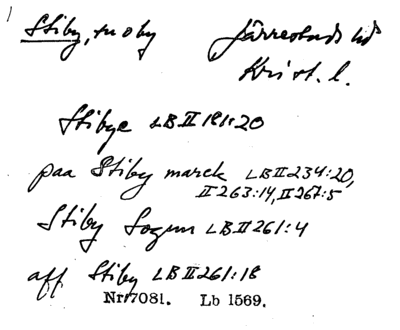 Stiby, sn o by Järrestads hd
Krist. l.
Stibye LB II 181:20
paa Stiby marck LB II 234:20,
II 263:14, II 267:5
Stiby Sogn LB II 261:4
aff Stiby LB II 261:18
Nr. 7081. Lb 1569.